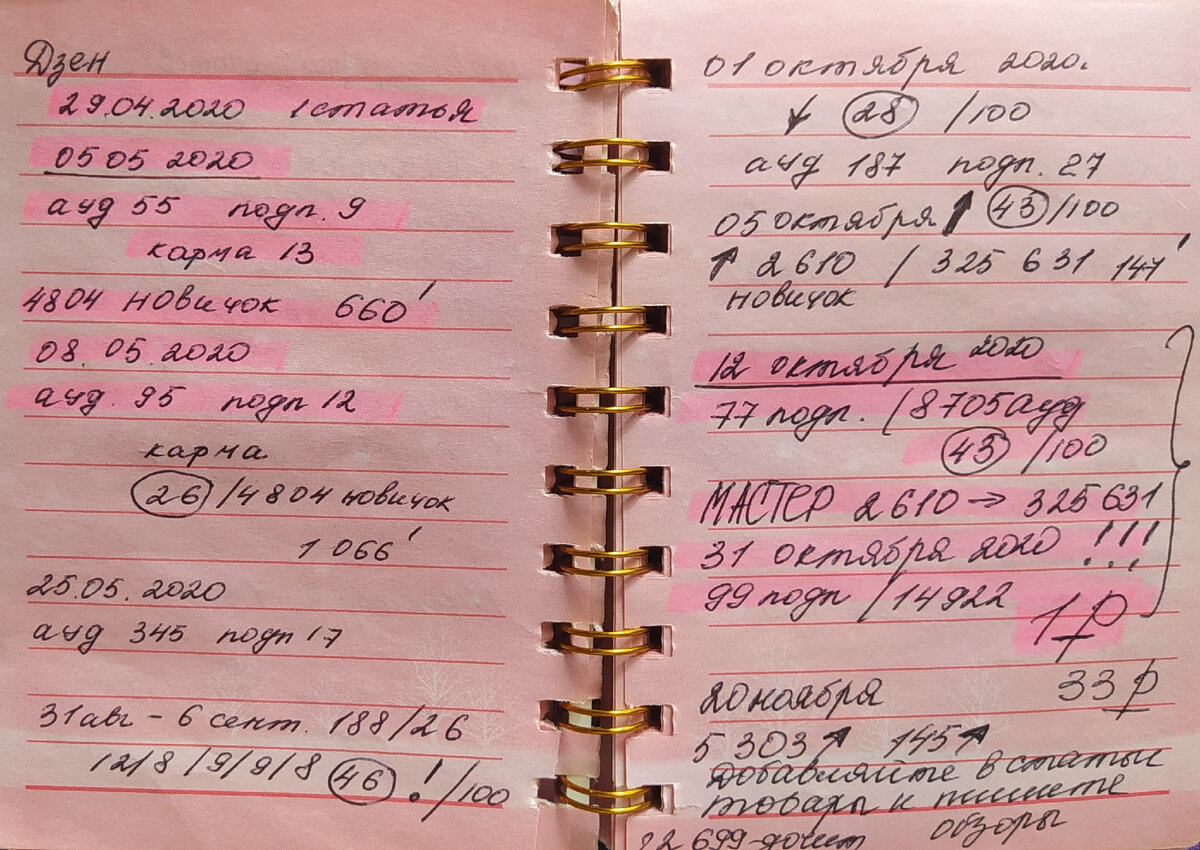 Дзен
29.04.2020 1 статья
05 05 2020
ауд 55 подп. 9
карма 13
4804 новичок 660'
08.05.2020
ауд. 95 подп 12
карма
26 /4804 новичок
1 066'
25.05.2020
ауд 345 подп 17
31 авг - 6 сент. 188/26
12/8/9/9/8 46 ! /100
01 октября 2020.
↓ 28 /100
ауд 187 подп. 27
05 октября ↑ 43/100
↑ 2610 / 325 631 147'
новичок
12 октября 2020
77 подп. /8705 ауд
43 /100
МАСТЕР 2610 → 325 631
31 октября 2020 !!!
99 подп /14922
1₽
20 ноября 33 ₽
5 303↑ 145↑
Добавляйте в статьи
товары и пишите
обзоры
22 699-дочит